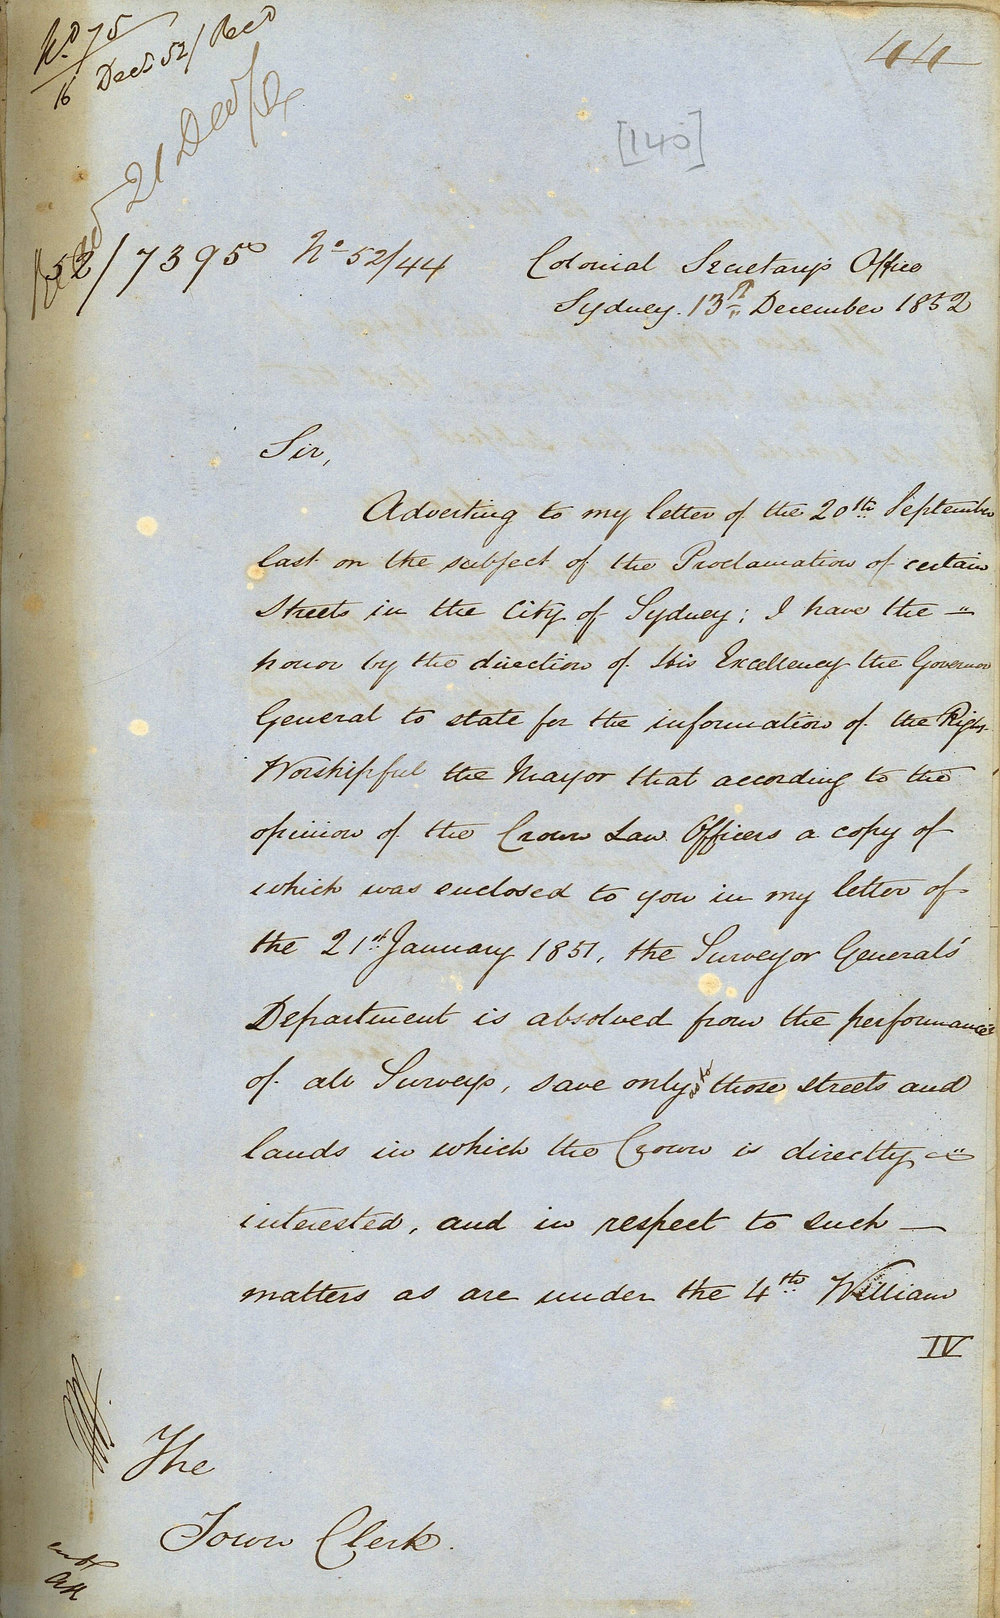 No 75
16 Decr 52/ Recd
44
[140]
21 Decr/52
52/7395 No 52/44
Colonial Secretary's Office
Sydney. 13th December 1852
Sir,
Adverting to my letter of the 20th September
last on the subject of the Proclamation of certain
Streets in the City of Sydney; I have the
honor by the direction of His Excellency the Governor
General to state for the information of the Right
Worshipful the Mayor that according to the
opinion of the Crown Law Officers a copy of
which was enclosed to you in my letter of
the 21st January 1851, the Surveyor General's
Department is absolved from the performance
of all Surveys, save only as to those streets and
lands in which the Crown is directly
interested, and in respect to such
matters as are under the 4th William
IV
The
Town Clerk.